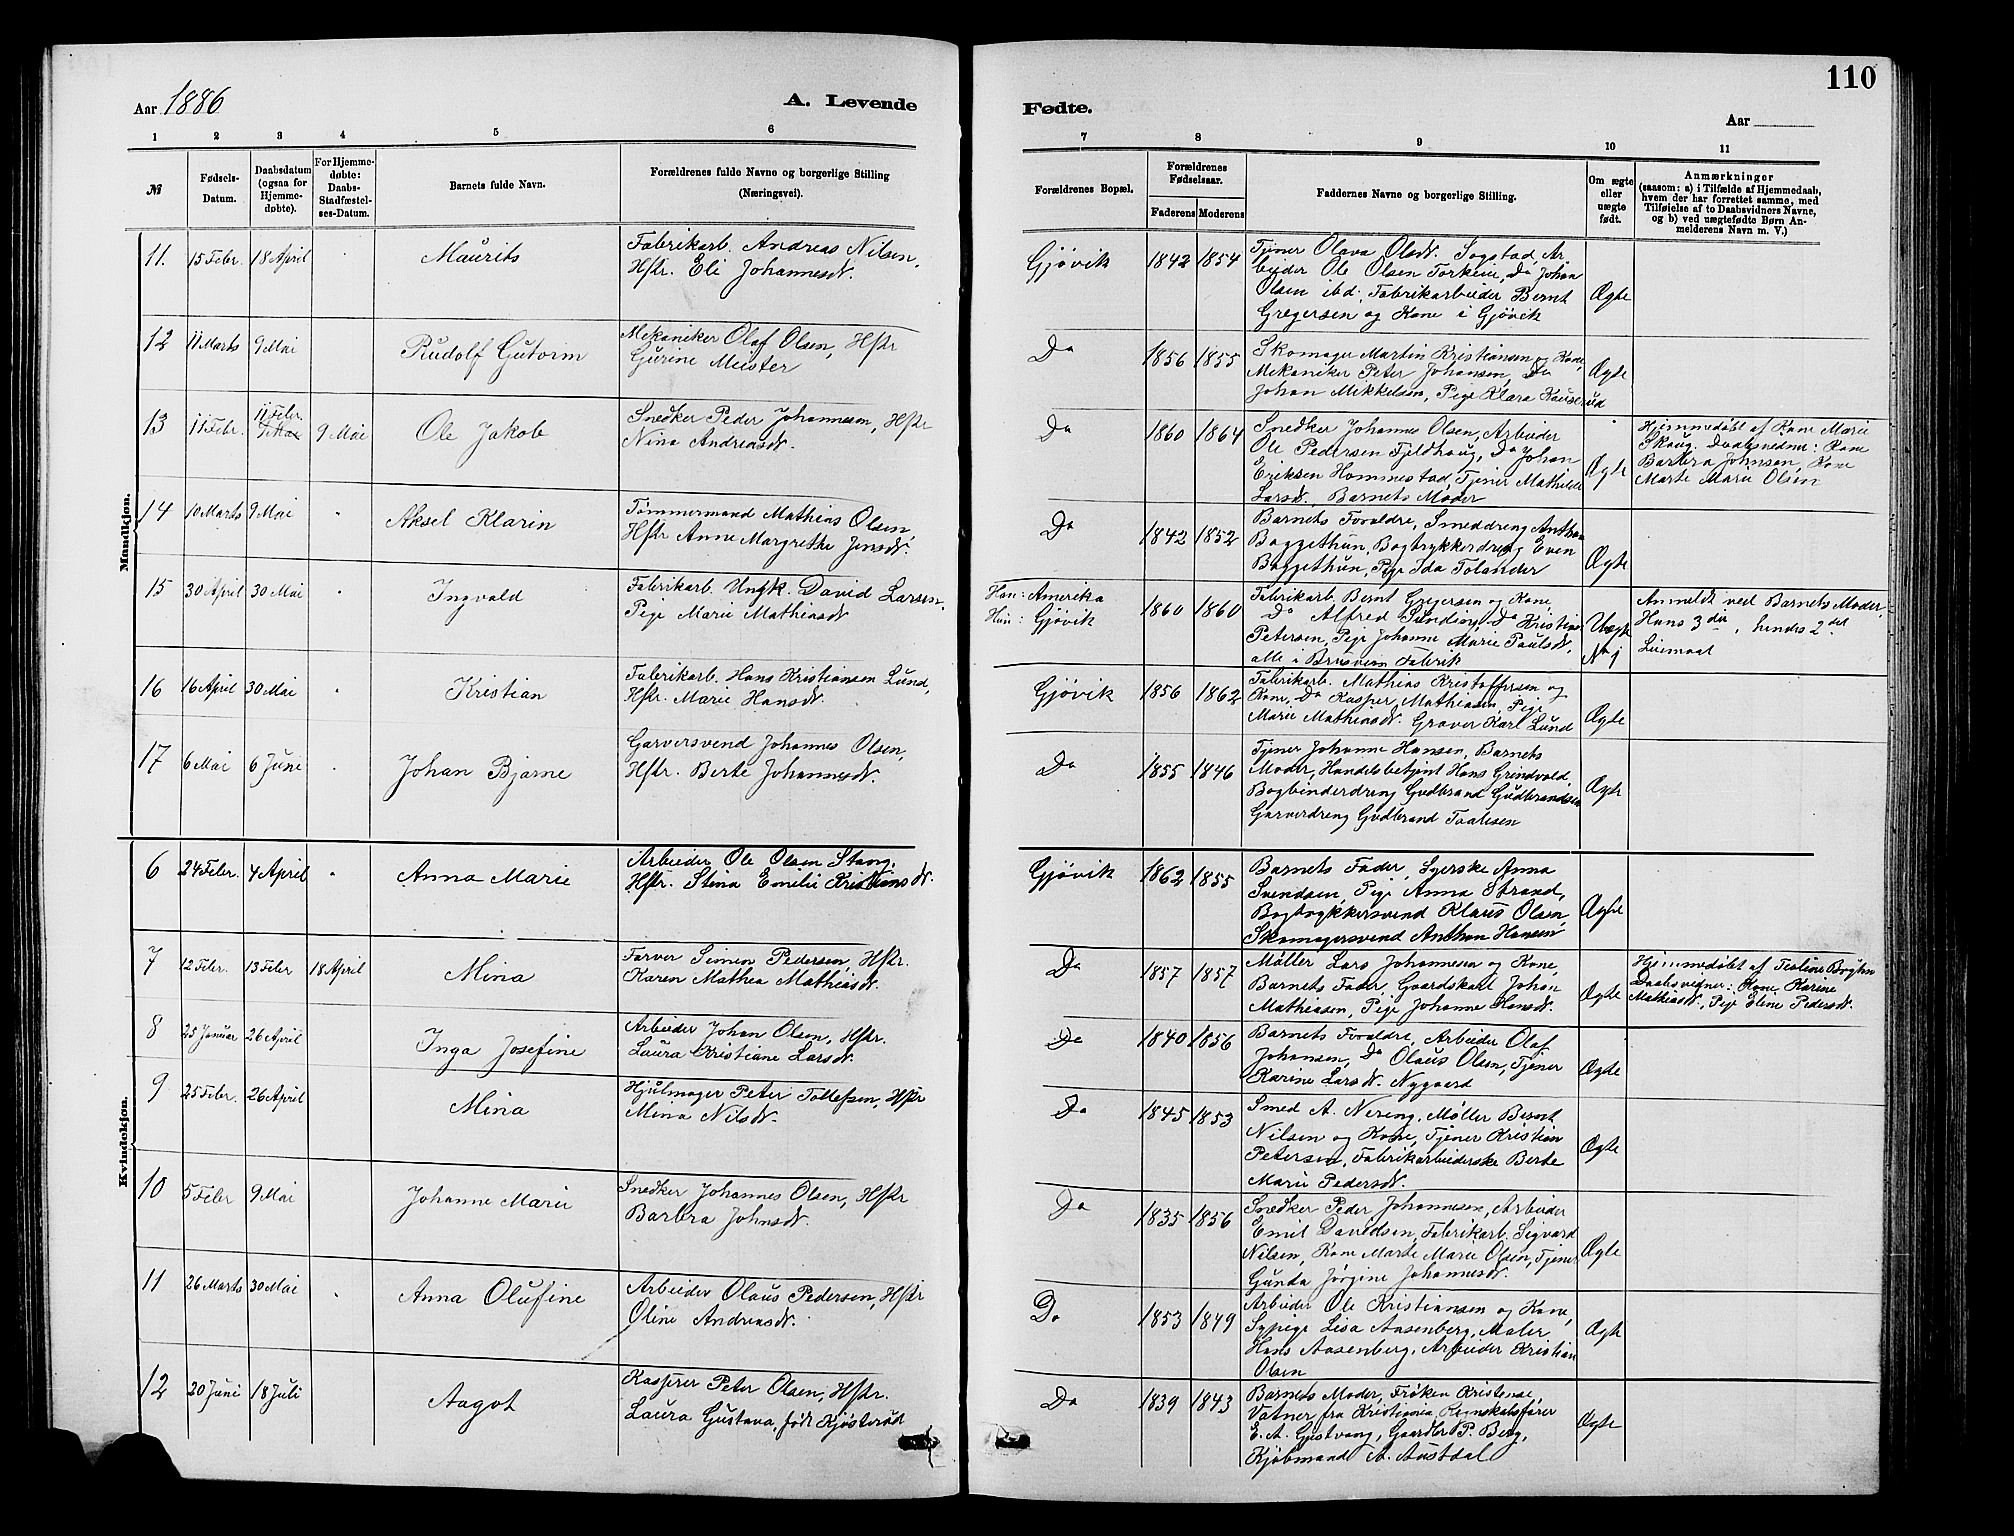 110
Aar 1886
A. Levende
Fødte.
Aar
1 2 3 4 5 6
7 8 9 10 11
№
Fødsels-
Datum.
Daabsdatum
(ogsaa for
Hjemme-
døbte).
For Hjemme-
døbte:
Daabs-
Stadfæstel-
ses-Datum.
Barnets fulde Navn.
Forældrenes fulde Navne og borgerlige Stilling
(Næringsvei).
Forældrenes Bopæl.
Forældrenes
Fødselsaar.
Faderens Moderens
Faddernes Navne og borgerlige Stilling.
Om ægte
eller
uægte
født.
Anmærkninger
(saasom: a) i Tilfælde af Hjemmedaab,
hvem der har forrettet samme, med
Tilføielse af to Daabsvidners Navne,
og b) ved uægtefødte Børn An-
melderens Navn m. V.)
Mandkjøn.
11. 15 Febr. 18 April Maurits
Fabrikarb. Andreas Nilsen,
Hstr. Eli Johannesdt.
Gjøvik 1842 1854
Tjener Olava Olsdt. Sogstad, Ar-
beider Ole Olsen Torkeie, Do Johan
Olsen ibd. Fabrikarbeider Bernt
Gregersen og Kone i Gjøvik
Ægte
12 11 Marts 9 Mai Rudolf Gutorm
Mekaniker Olaf Olsen, Hstr
Gurine Meister
Do 1856 1855
Skomager Martin Kristiansen og Kone,
Mekaniker Peter Johansen, Do
Johan Mikkelsen, Pige Klara Kauserud
Ægte
13 11 Febr. 11 Febr. 9 Mai 9 Mai Ole Jakob
Snedker Peder Johannesen, Hstr
Nina Andreasdt.
Do 1860 1864
Snedker Johannes Olsen, Arbeider
Ole Pedersen Fjeldhaug, Do Johan
Eriksen Hommestad, Tjener Mathilde
Larsdt. Barnets Moder
Ægte
Hjemmedøbt af Kone Marie
Skaug. Daabsvidner: Kone
Barbra Johnsen, Kone
Marte Marie Olsen
14 10 Marts 9 Mai Aksel Klarin
Tømmermand Mathias Olsen,
Hstr Anne Margrethe Jensdt.
Do 1842 1852
Barnets Forældre, Smeddreng Anthon
Baggethun, Bogtrykkerdreng Even
Baggethun, Pige Ida Tolander
Ægte
15 30 April 30 Mai Ingvald
Fabrikarb. Ungk. David Larsen,
Pige Marie Mathiasdt
Han: Amerika
Hun: Gjøvik
1860 1860
Fabrikarb. Bernt Gregersen og Kone,
Do Alfred Sunding, Do Kristian
Petersen, Pige Johanne Marie Paulsdt,
alle i Brusveen Fabrik
Uægte
No 1
Anmeldt ved Barnets Moder,
Hans 3die, hendes 2det
Leiemaal
16 16 April 30 Mai Kristian
Fabrikarb. Hans Kristiansen Lund,
Hstr. Marie Hansdt.
Gjøvik 1856 1862
Fabrikarb. Mathias Kristoffersen og
Kone, Do Kasper Mathiasen, Pige
Marie Mathiasdt. Graver Karl Lund
Ægte
17 6 Mai 6 Juni Johan Bjarne
Garversvend Johannes Olsen,
Hstr. Berte Johannesdt.
Do 1855 1846
Tjener Johanne Hansen, Barnets
Moder, Handelsbetjent Hans Grindvold,
Bogbinderdreng Gudbrand Gudbrandsen
Garverdreng Gudbrand Paulsen
Ægte
Kvindekjøn.
6 24 Febr. 4 April Anna Marie
Arbeider Ole Olsen Stang,
Hstr. Stina Emilie Kristiansdt.
Gjøvik 1862 1855
Barnets Fader, Syerske Anna
Svendsen, Pige Anna Strand,
Bogtrykkersvend Klaus Olsen,
Skomagersvend Anthon Hansen
Ægte
7 12 Febr. 13 Febr 18 April Mina
Farver Simen Pedersen, Hstr.
Karen Mathea Mathiasdt.
Do 1857 1857
Møller Lars Johannesen og Kone,
Barnets Fader, Gaardskarl Johan
Mathiasen, Pige Johanne Hansdt.
Ægte
Hjemmedøbt af Teoline
Daabsvidner: Kone Karine
Mathiasdt., Pige Eline Pedersdt.
8 25 Januar 26 April Inga Josefine
Arbeider Johan Olsen, Hstr.
Laura Kristiane Larsdt.
Do 1840 1856
Barnets Forældre, Arbeider Olaf
Johansen, Do Olaus Olsen, Tjener
Karine Larsdt. Nygaard
Ægte
9 25 Febr. 26 April Mina
Hjulmager Peter Tollefsen, Hstr
Mina Nilsdt.
Do 1845 1853
Smed A. Nereng, Møller Bernt
Nilsen og Kone, Tjener Kristian
Petersen, Fabrikarbeiderske Berte
Marie Pedersdt.
Ægte
10 5 Febr 9 Mai Johanne Marie
Snedker Johannes Olsen, Hstr
Barbra Johnsdt.
Do 1835 1856
Snedker Peder Johannesen, Arbeider
Emil Davidsen, Fabrikarb. Sigvard
Nilsen, Kone Marte Marie Olsen, Tjener
Gunda Jørgine Johannesdt.
Ægte
11 26 Marts 30 Mai Anna Olufine
Arbeider Olaus Pedersen, Hstr
Oline Andreasdt.
Do 1853 1849
Arbeider Ole Kristiansen og Kone,
Sypige Lisa Aasenberg, Maler
Hans Aasenberg, Arbeider Kristian
Olsen
Ægte
12 20 Juni 18 Juli Aagot
Kasserer Peter Olsen, Hstr.
Laura Gustava, født Kjøsterud
Do 1839 1843
Barnets Moder, Frøken Kristense
Vatner fra Kristiania, Regnskabsfører
E. A. Gjestvang, Gaardbr. P. Berg,
Kjøbmand A. Austdal
Ægte